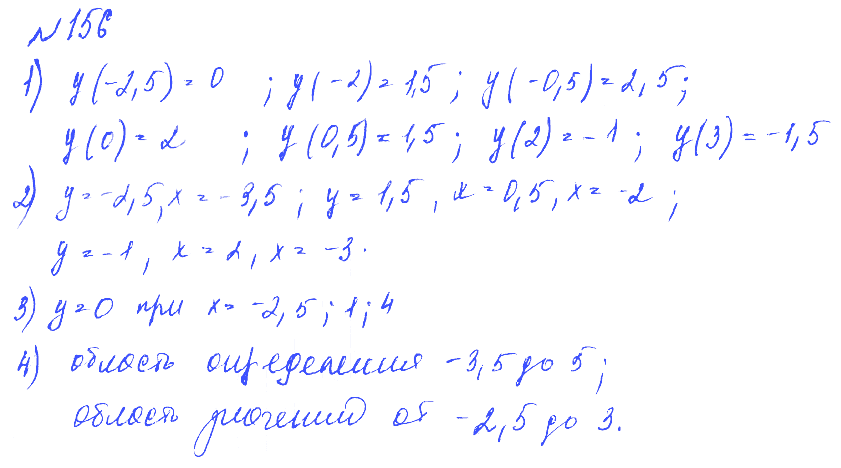 №156
1) y(-2,5)=0 ; y(-2)=1,5; y(-0,5)=2,5;
y(0)=2 ; y(0,5)=1,5; y(2)=-1; y(3)=-1,5
2) y=-2,5, x=-3,5; y=1,5, x=0,5, x=-2;
y=-1, x=2, x=-3.
3) y=0 при x=-2,5; 1; 4
4) область определения -3,5 до 5;
область значений от -2,5 до 3.